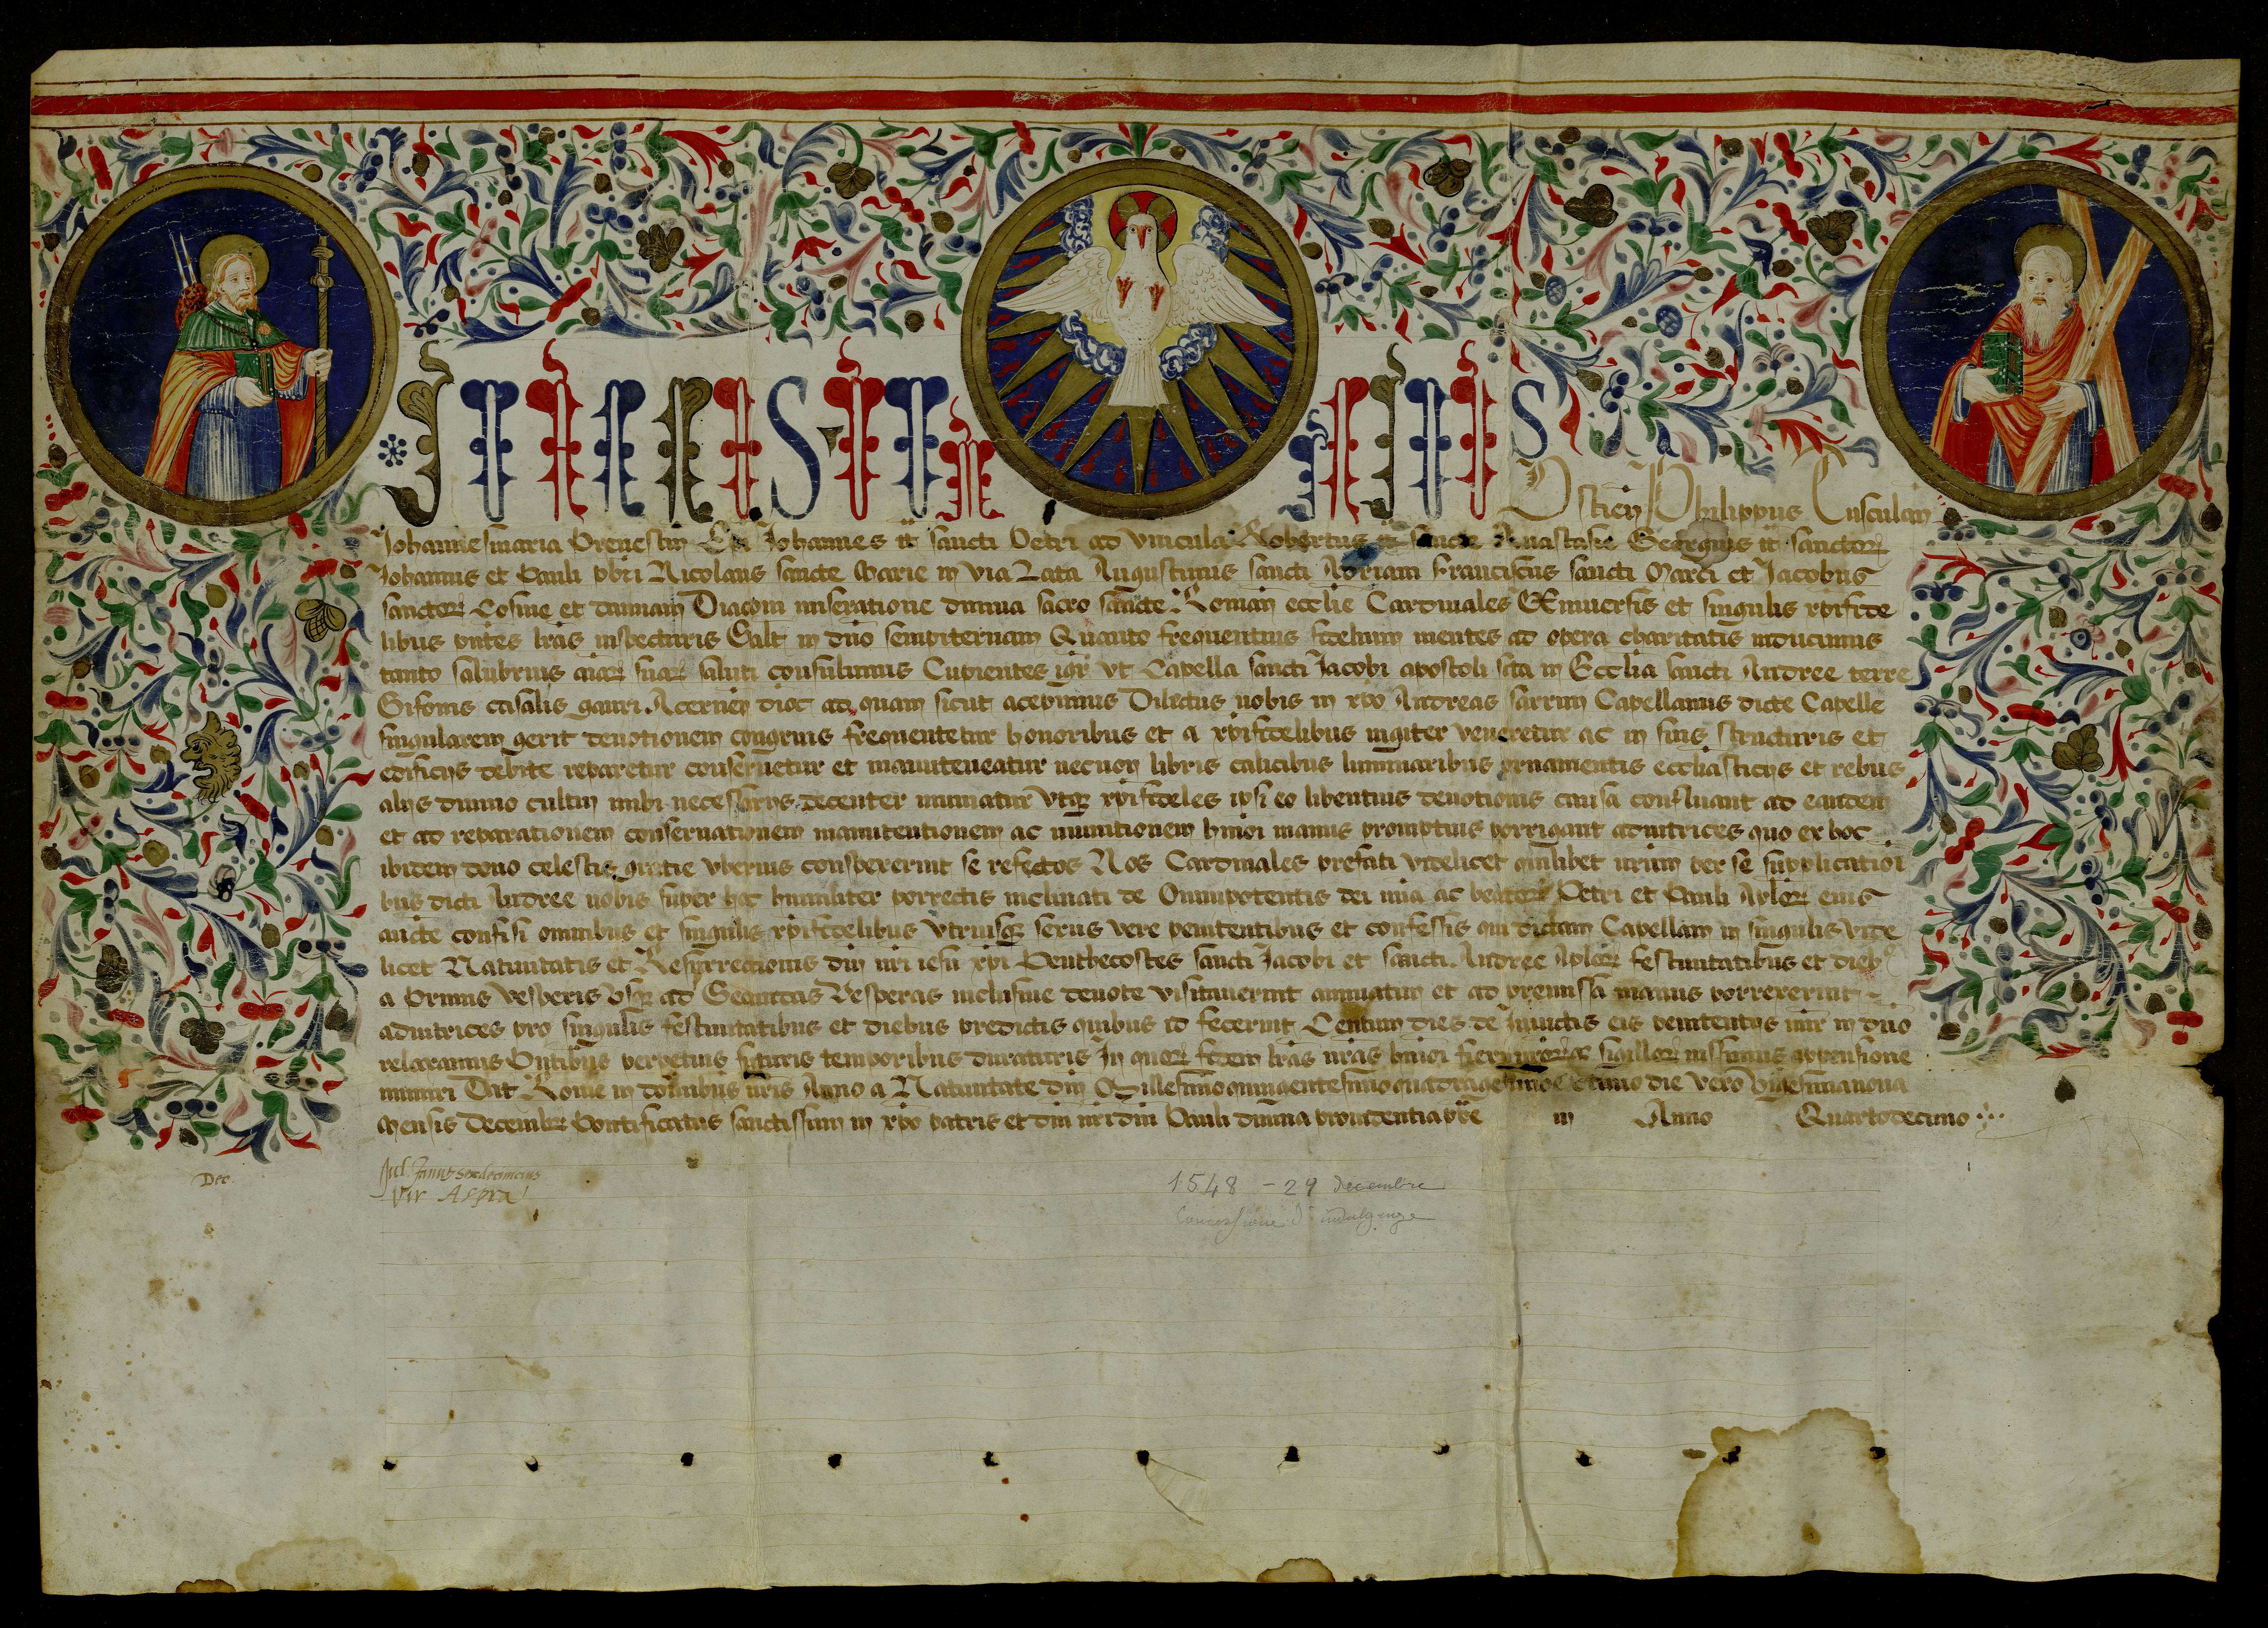 Ostien Philippus Tusculan
Johannesmaria Prenestin Epi Johannes tt sancti Petri ad vincula Robertus tt sancte Anastasie Georgius tt sanctor
Johannis et Pauli pbri Nicolaus sancte Marie in via Lata Augustinus sancti Adriani Franciscus sancti Marci et Jacobus
sanctor Cosme et damiani Diaconi miseratione divina sacro sancte Roman ecclie Cardinales Universis et singulis xpifide
libus pntes lras inspecturis Salt in dno sempiternam Quanto frequentius fidelium mentes ad opera charitatis inducimus
tanto salubrius aiar suar saluti consulimus Cupientes igr vt Capella sancti Jacobi apostoli sita in Ecclia sancti Andree terre
Gifonis casalis gauri Acernen dioc ad quam sicut acepimus Dilectus nobis in xpo Andreas sarrim Capellanus dicte Capelle
singularem gerit deuotionem congruis frequentetur honoribus et a xpifidelibus iugiter veneretur ac in suis structuris et
edificijs debite reparetur conseruetur et manuteneatur necnon libris calicibus luminaribus ornamentis ecclasticijs et rebus
alijs diuino cultui inibi necessarijs decenter muniatur vtq xpifideles ipsi eo libentius deuotionis causa confluant ad eandem
et ad reparationem conseruationem manutentionem ac munitionem hmoi manus promptius porrigant adiutrices quo ex hoc
ibidem dono celestis gratie vberius conspexerint se refectos Nos Cardinales prefati videlicet quilibet nrum per se supplicatioi
bus dicti Andree nobis super hoc humiliter porrectis inclinati de Omnipotentis dei mia ac beator Petri et Pauli Aplor eius
aucte confisi omnibus et singulis xpifidelibus vtriusq sexus vere penitentibus et confessis qui dictam Capellam in singulis vide
licet Natiuitatis et Resurrectionis dni nri iesu xpi Penthecostes sancti Jacobi et sancti Andree Aplor festiuitatibus et dieb
a Primis vesperis vsq ad Secundas Vesperas inclusiue deuote visitauerint annuatim et ad premissa manus porrexerint
adiutrices pro singulis festiuitatibus et diebus predictis quibus id fecerint Centum dies de Iniunctis eis penitentijs mir in dno
relaxamus Pntibus perpetuis futuris temporibus duraturis In quor fidem lras nras hmoi fieri nrorq sigillor iussimus appensione
muniri Dat Rome in domibus nris Anno a Natiuitate dni Millesimoquingentesimoquadragesimooctauo die vero vigesimanona
Mensis Decembr Pontificatus sanctissimi in xpo patris et dni nri dni Pauli diuina prouidentia ppe iij Anno Quartodecimo
Dec.
Vir Aspra
1548 - 29 decembre
Concessione d'indulgenze